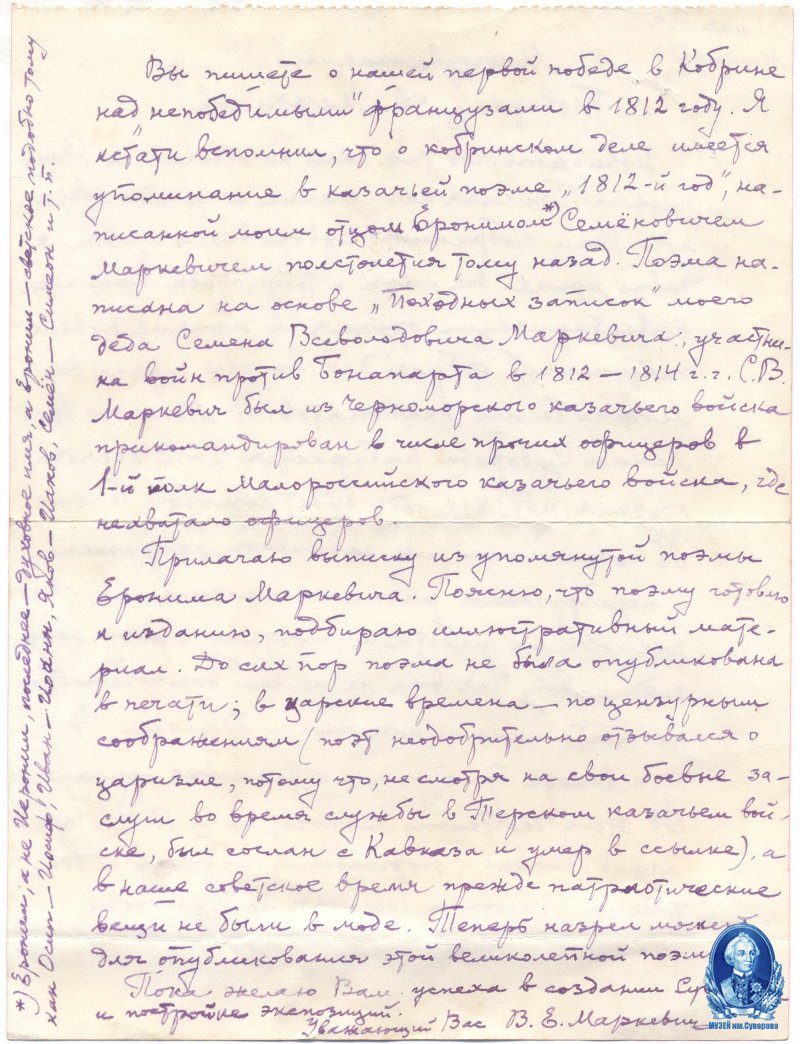 Вы пишете о нашей первой победе в Кобрине
над непобедимыми" французами в 1812 году. Я
кстати вспомнил, что о кобринском деле имеется
упоминание в казачьей поэме „1812-й год", на-
писанной моим отцом Еронимом*) Семёновичем
Маркевичем полстолетия тому назад. Поэма на-
писана на основе „Походных записок" моего
деда Семена Всеволодовича Маркевича, участни-
ка войн против Бонапарта в 1812 — 1814 г.г. С.В.
Маркевич был из Черноморского казачьего войска
прикомандирован в числе прочих офицеров в
1-й полк Малороссийского казачьего войска, где
нехватало офицеров.
Прилагаю выписку из упомянутой поэмы
Еронима Маркевича. Поясню, что поэму готовлю
к изданию, подбираю иллюстративный мате-
риал. До сих пор поэма не была опубликована
в печати; в царские времена — по цензурным
соображениям (поэт неодобрительно отзывался о
царизме, потому что, не смотря на свои боевые за-
слуги во время службы в Терском казачьем вой-
ске, был сослан с Кавказа и умер в ссылке), а
в наше советское время прежде патриотические
вещи не были в моде. Теперь назрел момент
для опубликования этой великолепной поэм
Пока желаю Вам успеха в создании
и постройке экспозиций.
Уважающий Вас В. Е. Маркевич
*) Ероним, а не Иероним, последнее — духовное имя, а Ероним — светское, подобно тому
как Осип — Иосиф, Иван — Иоанн, Яков — Иаков, Семён — Симеон и т. п.
МУЗЕЙ им.Суворова